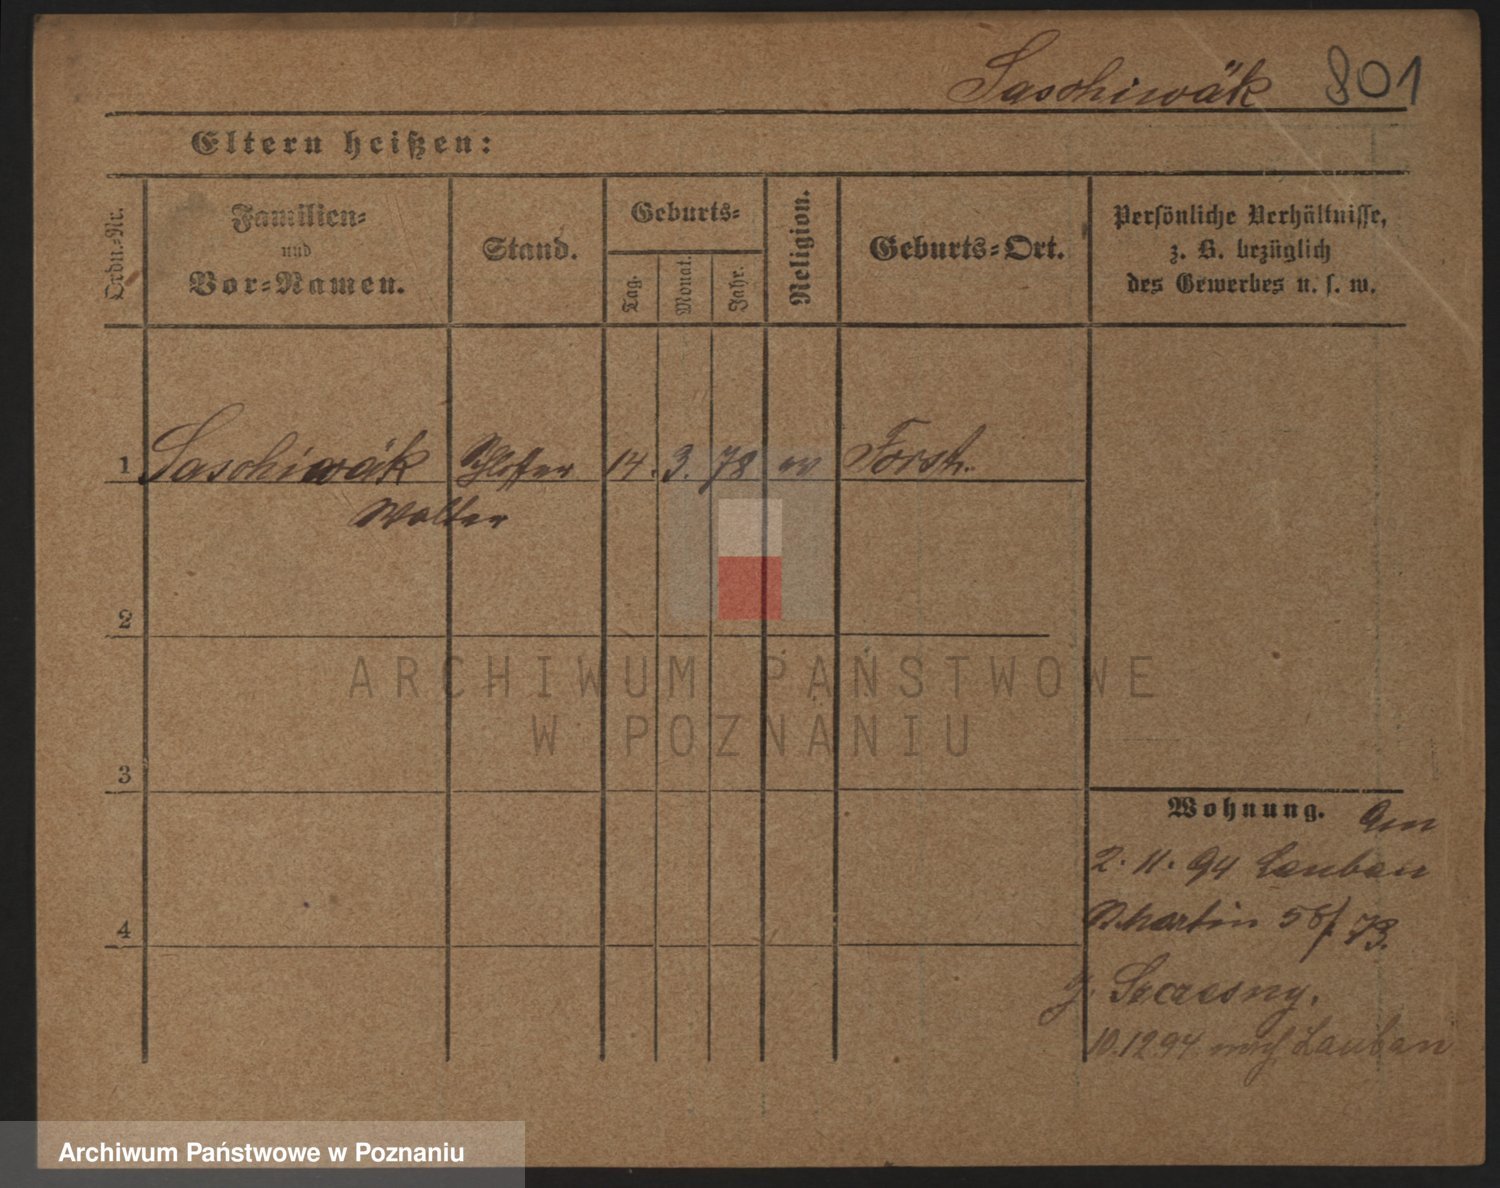 Saschiwäk 801
Eltern heißen:
Ordn.-Nr.
Familien-
und
Vor-Namen.
Stand.
Geburts-
Tag.
Monat.
Jahr.
Religion.
Geburts-Ort.
Persönliche Verhältnisse,
z. B. bezüglich
des Gewerbes u. s. w.
1 Saschiwäk Schlosser 14. 3. 78 ev Forst.
Walter
2
3
4
Wohnung. Am
2. 11. 94 Lauban
St. Martin 58/ 73.
Szczesny.
10.12.94 nach Lauban
ARCHIWUM PAŃSTWOWE
W POZNANIU
Archiwum Państwowe w Poznaniu